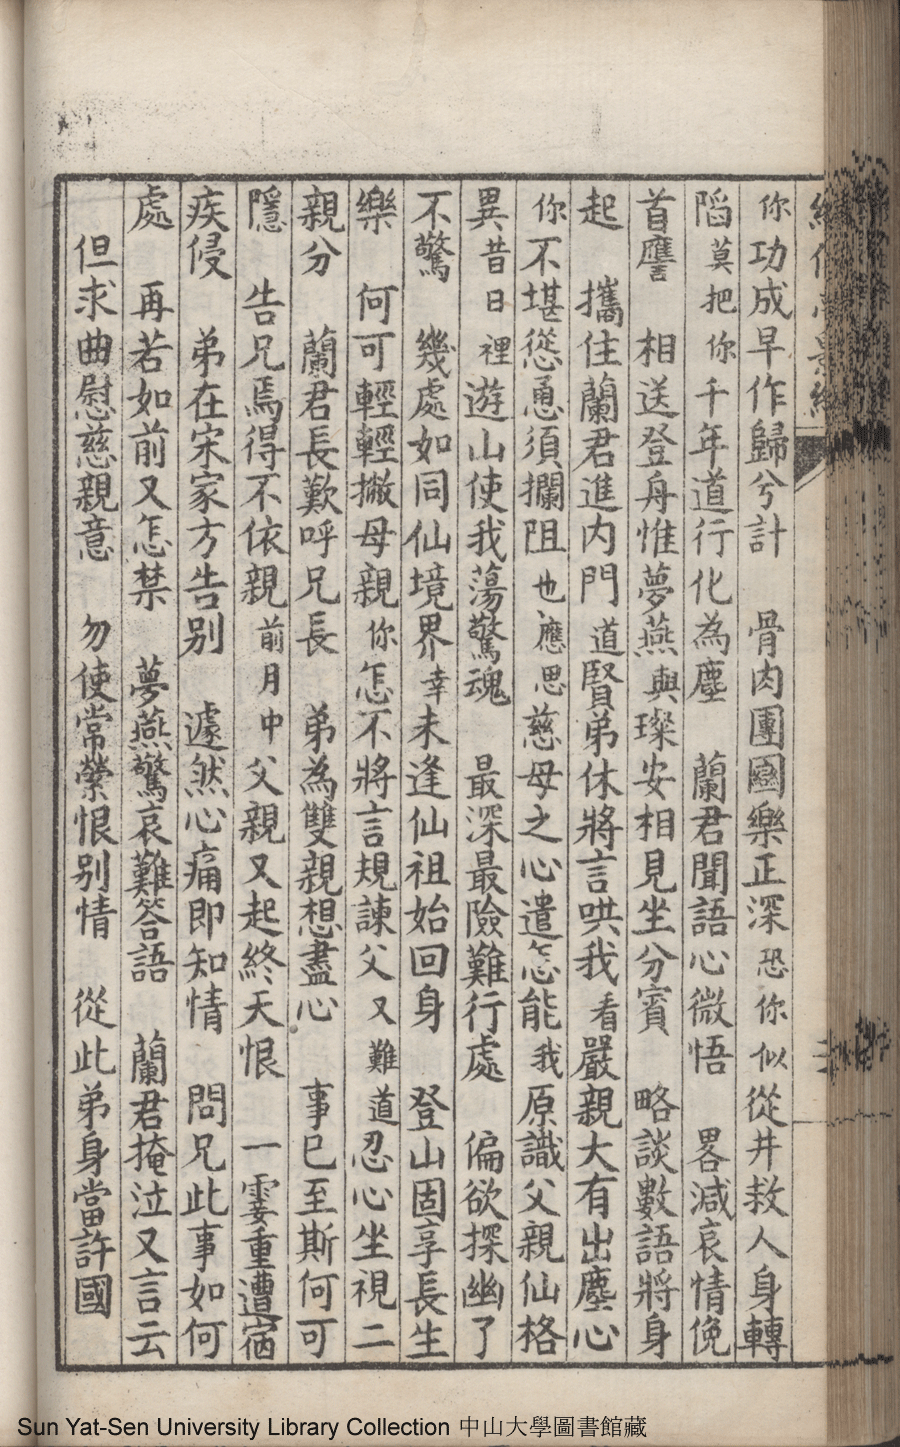 你功成早作歸兮計　骨肉團圞樂正深恐你似從井救人身轉
陷莫把你千年道行化為塵　蘭君聞語心微悟　畧減哀情俛
首譍　相送登舟惟夢燕與璨安相見坐分賓　略談數語將身
起　攜住蘭君進内門道賢弟休將言哄我看嚴親大有出塵心
你不堪慫恿須攔阻也應思慈母之心遣怎能我原識父親仙格
異昔日裡遊山使我蕩驚魂　最深最險難行處　偏欲探幽了
不驚　幾處如同仙境界幸未逢仙祖始回身　登山固享長生
樂　何可輕輕撇母親你怎不將言規諫父又難道忍心坐視二
親分　蘭君長歎呼兄長　弟為雙親想盡心　事已至斯何可
隱　告兄焉得不依親前月中父親又起終天恨　一霎重遭宿
疾侵　弟在宋家方告别　遽然心痛即知情　問兄此事如何
處　再若如前又怎禁　夢燕驚哀難答語　蘭君掩泣又言云
但求曲慰慈親意　勿使常縈恨别情　從此弟身當許國
Sun Yat-Sen University Library Collection 中山大學圖書館藏